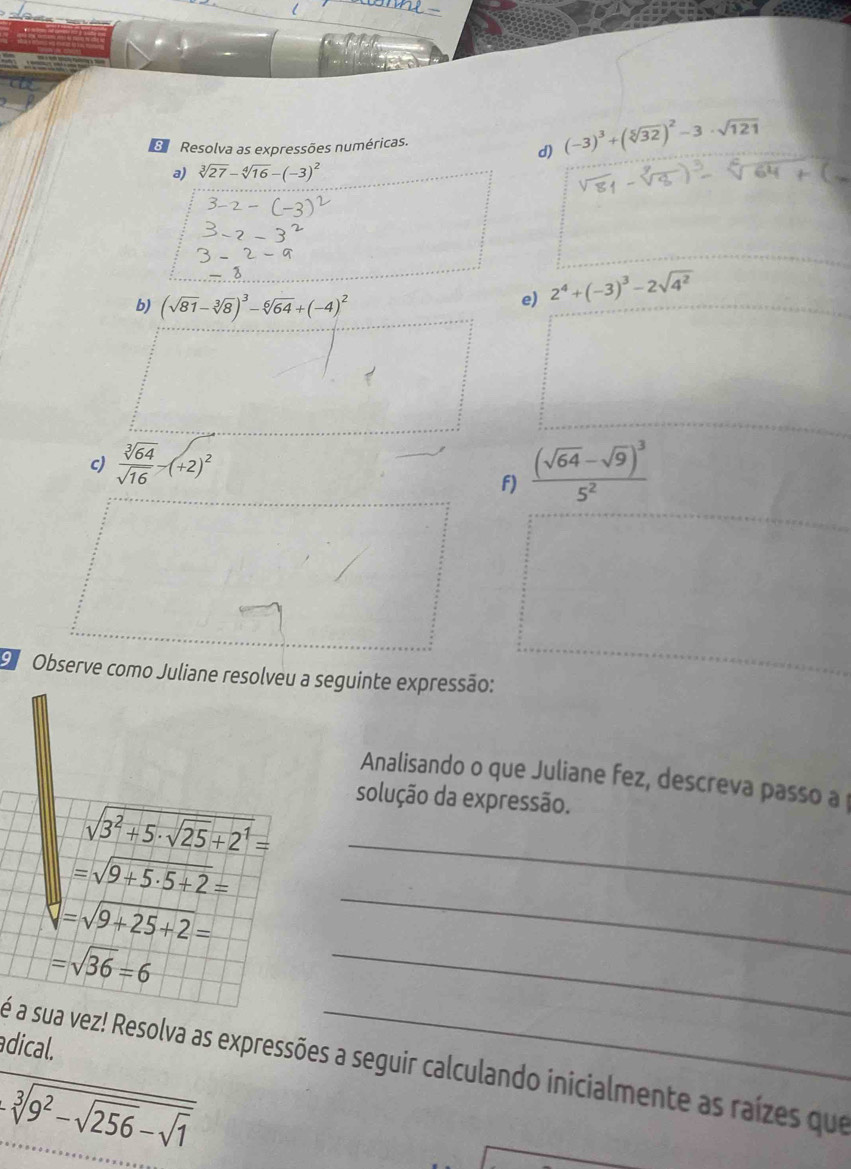 8 Resolva as expressões numéricas.
a) ∛27 − ∜16 − (−3)²
3 - 2 - (-3)²
3 - 2 - 3²
3 - 2 - 9
- 8
b) (√81 − ∛8)³ − ⁶√64 + (−4)²
c) ∛64/√16 − (+2)²
d) (−3)³ + (⁵√32)² − 3 · √121
√81 - ∛8)³ - ⁶√64 + (-
e) 2⁴ + (−3)³ − 2√4²
f) (√64 − √9)³/5²
9 Observe como Juliane resolveu a seguinte expressão:
√(3² + 5 · √25 + 2¹) =
= √(9 + 5 · 5 + 2) =
= √(9 + 25 + 2) =
= √36 = 6
Analisando o que Juliane fez, descreva passo a
solução da expressão.
é a sua vez! Resolva as expressões a seguir calculando inicialmente as raízes que
adical.
∛(9² − √256 − √1)